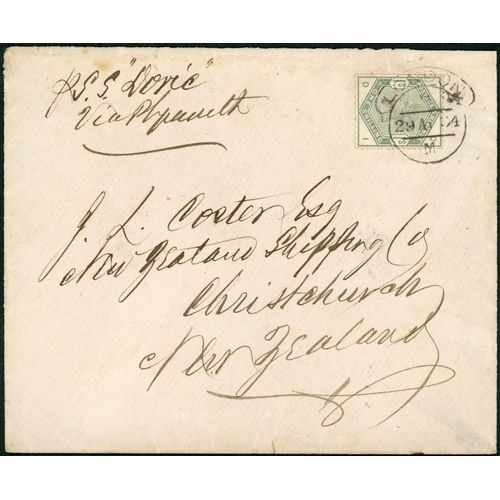 p S.S. "Doric"
Via Plymouth
LONDON
29 AU 84
M
J. L. Coster Esq
New Zealand Shipping Co
Christchurch
New Zealand